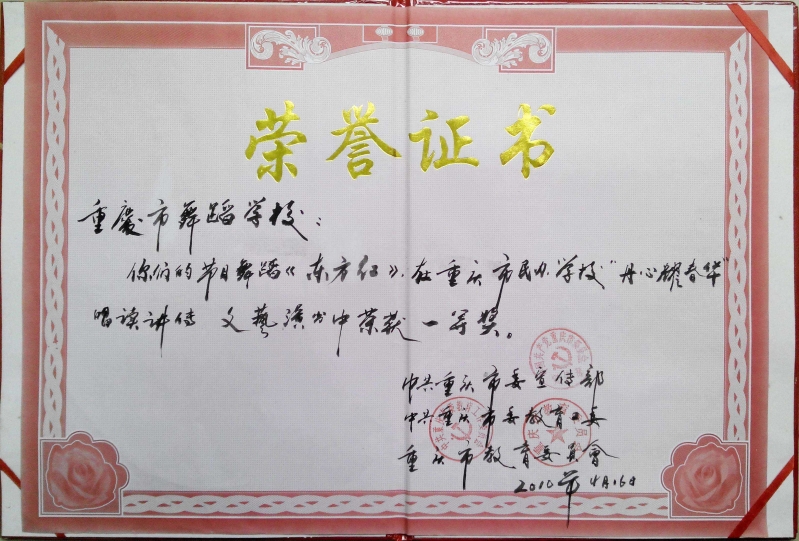 荣誉证书
重慶市舞蹈学校：
你们的节目舞蹈《东方红》，在重庆市民办学校“丹心耀春华”
唱读讲传 文藝演出中荣获一等奖。
中共重庆市委宣传部
中共重庆市委教育工委
重庆市教育委员會
2010年4月16日